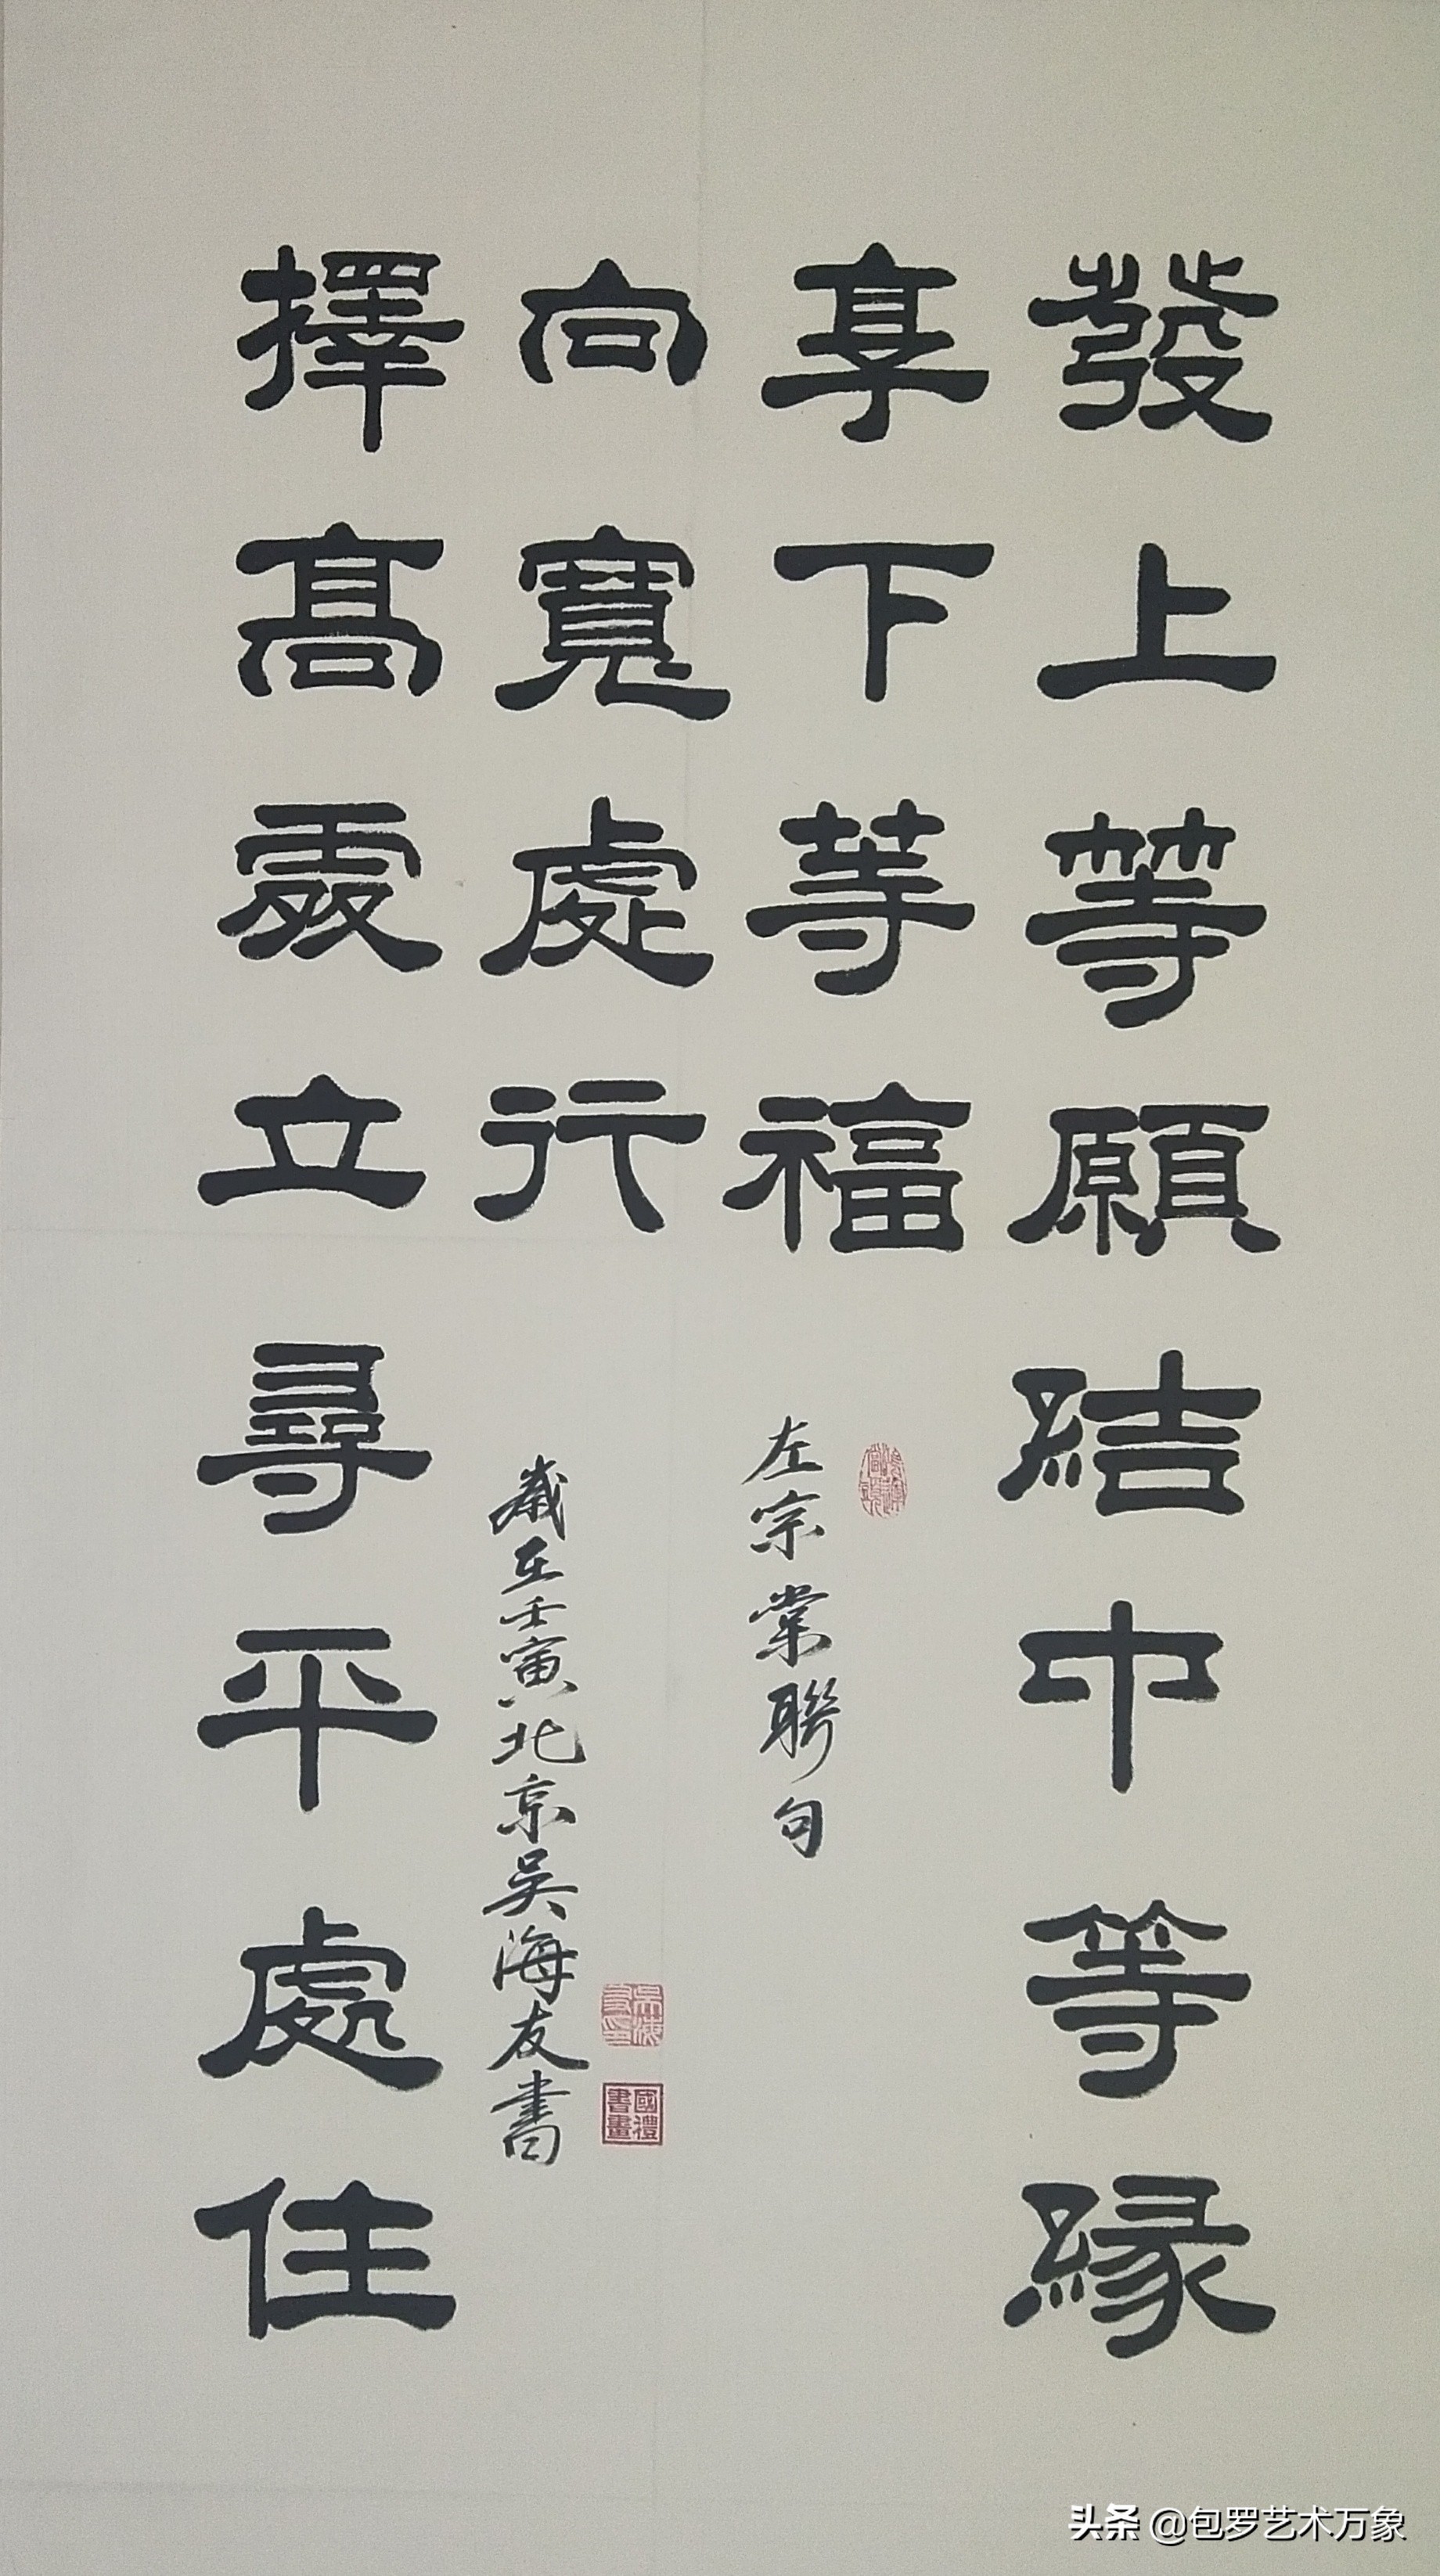 發上等願結中等緣
享下等福
左宗棠聯句
向寬處行
歲在壬寅北京吳海友書
國禮書畫
擇高處立尋平處住
头条 @包罗艺术万象